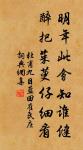 明年此會知誰健
醉把茱萸仔細看
杜甫九日藍田崔氏莊
詞典網集